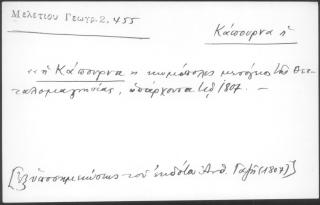 Μελετίου Γεωγρ. 2, 455
Κάπουρνα ἡ
"ἡ Κάπουρνα ἡ κωμόπολις μεσόγειος τῆς Θετ-
ταλομαγνησίας, ὑπάρχουσα τῷ 1807. —
[ὑποσημειώσεις τοῦ ἐκδότου Ἀνθ. Γαζῆ (1807)]